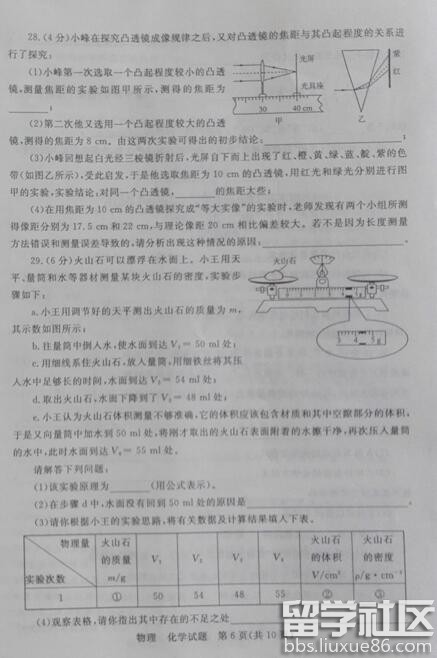 28.(4分)小峰在探究凸透镜成像规律之后,又对凸透镜的焦距与其凸起程度的关系进
行了探究:
(1)小峰第一次选取一个凸起程度较小的凸透
镜,测量焦距的实验如图甲所示,测得的焦距为
;
(2)第二次他又选用一个凸起程度较大的凸透
镜,测得的焦距为 8 cm。由这两次实验可得出的初步结论:
;
光屏
光具座
30
40 cm
甲
紫
红
乙
(3)小峰回想起白光经三棱镜折射后,光屏自下而上出现了红、橙、黄、绿、蓝、靛、紫的色
带(如图乙所示),受此启发,于是他选取焦距为 10 cm 的凸透镜,用红光和绿光分别进行图
甲的实验,实验结论:对同一个凸透镜, 的焦距大些;
(4)在用焦距为 10 cm 的凸透镜探究成“等大实像”的实验时,老师发现有两个小组所测
得像距分别为 17.5 cm 和 22 cm,与理论像距 20 cm 相比偏差较大。若不是因为长度测量
方法错误和测量误差导致的,请分析出现这种情况的原因:
29.(6分)火山石可以漂浮在水面上。小王用天
平、量筒和水等器材测量某块火山石的密度,实验步
骤如下:
a.小王用调节好的天平测出火山石的质量为 m,
其示数如图所示;
b.往量筒中倒入水,使水面到达 V₁ = 50 ml 处;
c.用细线系住火山石,放入量筒,用细铁丝将其压
入水中足够长的时间,水面到达 V₂ = 54 ml 处;
d.取出火山石,水面下降到了 V₃ = 48 ml 处;
火山石
3 4 5g
e.小王认为火山石体积测量不够准确,它的体积应该包含材质和其中空隙部分的体积,
于是又向量筒中加水到 50 ml 处,将刚才取出的火山石表面附着的水擦干净,再次压入量筒
的水中,此时水面到达 V₄ = 55 ml 处。
请解答下列问题:
(1)该实验原理为 (用公式表示)。
(2)在步骤 d 中,水面没有回到 50 ml 处的原因是
(3)请你根据小王的实验思路,将有关数据及计算结果填入下表。
物理量
实验次数
火山石的质量 m/g
V₁
V₂
V₃
V₄
火山石的体积 V/cm³
火山石的密度 ρ/g·cm⁻³
1 ① 50 54 48 55 ② ③
(4)观察表格,请你指出其中存在的不足之处
物理 化学试题 第 6 页(共 10
留学社区
bbs.liuxue86.com